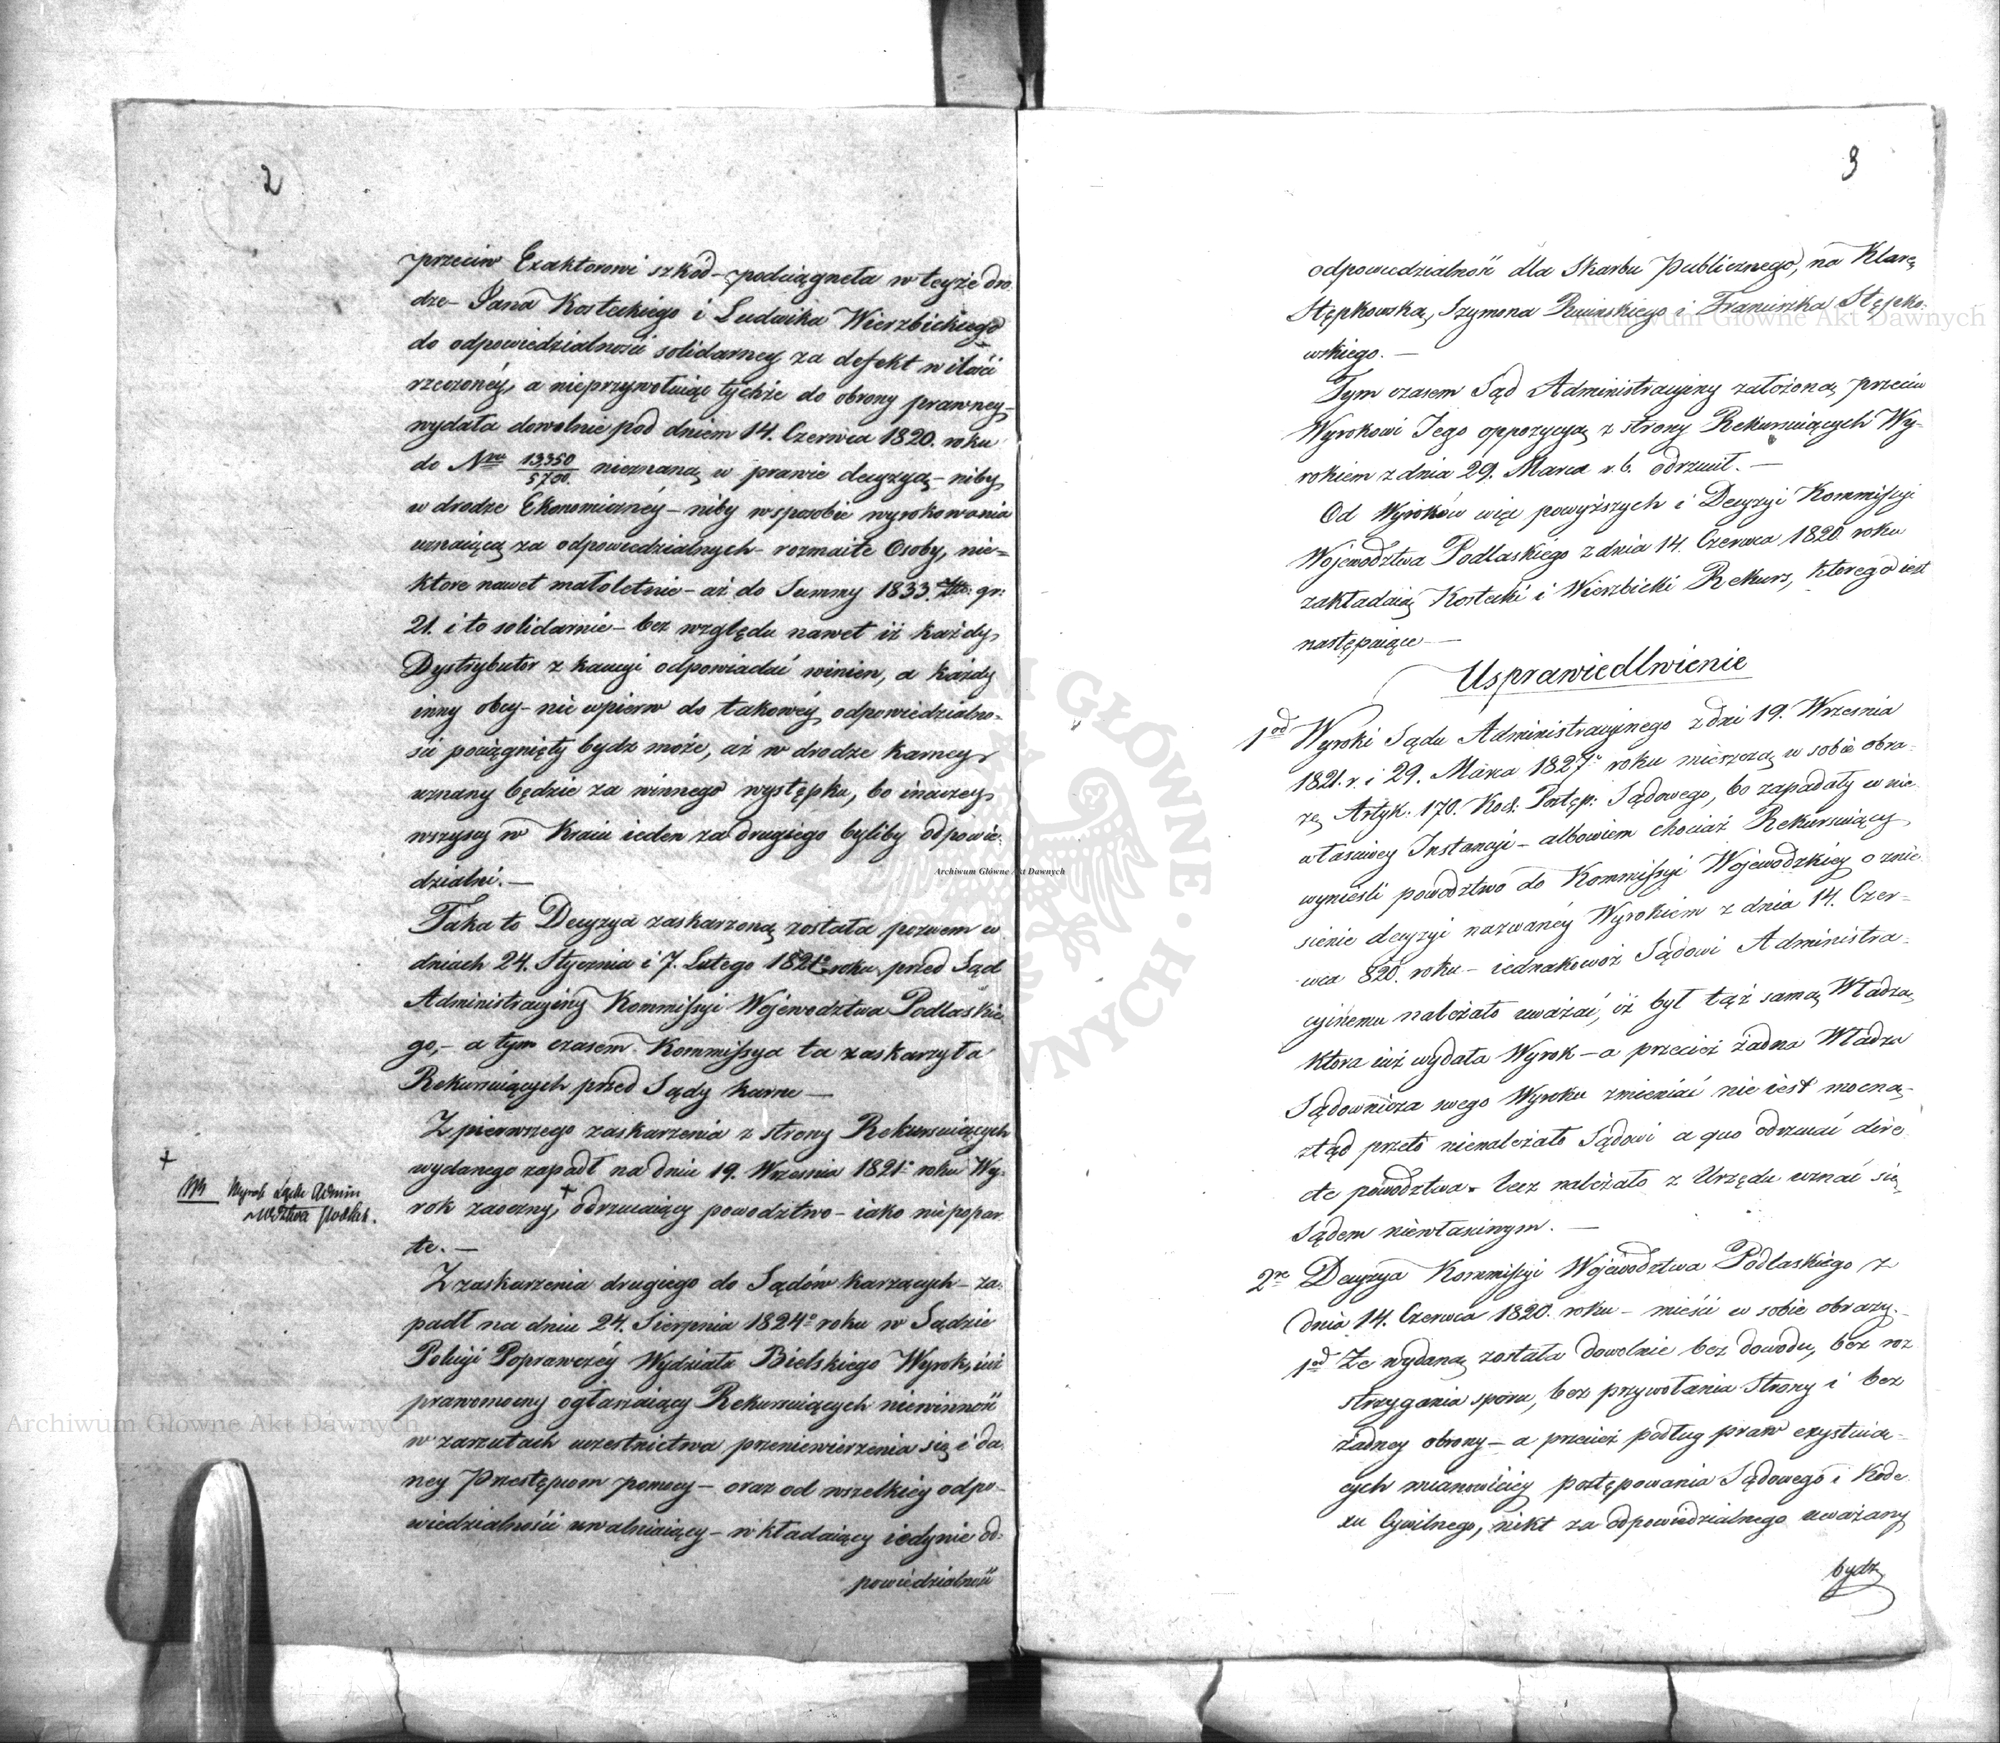 2
przeciw Exaktorowi szkód – podciągneła w teyże dro-
dze – Jana Kosteckiego i Ludwika Wierzbickiego
do odpowiedzialności solidarney za defekt w ilości
rzeczonéy, a nieprzywołuiąc tychże do obrony prawney –
wydała dowolnie pod dniem 14. Czerwca 1820. roku
do Nru 13,350/5,700. nieznaną w prawie decyzyą – niby
w drodze Ekonomicznéy – niby w sposobie wyrokowania
uznaiącą za odpowiedzialnych – rozmaite Osoby, nie=
ktore nawet małoletnie – aż do Summy 1833. Złto: gr:
21. i to solidarnie – bez względu nawet iż każdy
Dystrybutor z kaucyi odpowiadać winien, a każdy
inny obcy – nie wpierw do takowéy odpowiedzialno=
ści pociągnięty bydz może, aż w drodze karney
uznany będzie za winnego występku, bo inaczey
wszyscy w Kraiu ieden za drugiego byliby odpowie=
dzialni. —
Taka to Decyzya zaskarzoną została pozwem w
dniach 24. Stycznia i 7. Lutego 1821o roku przed Sąd
Administracyiny Kommissyi Województwa Podlaskie
go, – a tym czasem Kommissya ta zaskarzyła
Rekursuiących przed Sądy karne —
Z pierwszego zaskarzenia z strony Rekursuiących
wydanego zapadł na dniu 19. Września 1821o roku Wy-
rok zaoczny, + odrzucaiący powodztwo – iako niepopar
te. —
+
Wyrok Sądu Admin
Wdztwa Podlask.
Z zaskarzenia drugiego do Sądów karzących – za-
padł na dniu 24. Sierpnia 1824o roku w Sądzie
Policyi Poprawczéy Wydziału Bielskiego Wyrok, iuż
prawomocny ogłaszaiący Rekursuiących niewinność
w zarzutach uczestnictwa przeniewierzenia się i da
ney Przestępcom pomocy – oraz od wszelkiey odpo-
wiedzialności uwalniaiący – wkładaiący iedynie od=
powiedzialność
3
odpowiedzialność dla Skarbu Publicznego, na Klarę
Stępkowską, Szymona Rucinskiego i Franciszka Stępko-
wskiego. —
Tym czasem Sąd Administracyiny założoną przeciw
Wyrokowi Jego oppozycyą z strony Rekursuiących Wy-
rokiem z dnia 29. Marca r. b. odrzucił. —
Od Wyroków więc powyższych i Decyzyi Kommissyi
Województwa Podlaskiego z dnia 14. Czerwca 1820. roku
zakładaią Kostecki i Wierzbicki Rekurs, ktorego iest
następuiące —
Usprawiedlwienie
1od Wyroki Sądu Administracyinego z dni 19. Września
1821. r. i 29. Marca 1827o roku mieszczą w sobie obra-
zę Artyk. 170. Kod: Postęp: Sądowego, bo zapadały w nie
własciwey Instancyi – albowiem chociaż Rekursuiący
wynieśli powodztwo do Kommissyi Wojewodzkiey o znie
sienie decyzyi nazwanéy Wyrokiem z dnia 14. Czer-
wca 820. roku – iednakowoż Sądowi Administra-
cyinemu należało uważać, iż był tąż samą Władzą,
ktora iuż wydała Wyrok – a przecież żadna Władza
Sądownicza swego Wyroku zmieniać nie iest mocną,
ztąd przeto nienależało Sądowi a quo odrzucać dire
cte powodztwa. lecz należało z Urzędu uznać się
Sądem niewłasciwym. —
2re Decyzya Kommissyi Województwa Podlaskiego z
dnia 14. Czerwca 1820. roku – mieści w sobie obrazy. –
1od Ze wydaną została dowolnie bez dowodu, bez roz
strzygania sporu, bez przywołania Strony i bez
żadney obrony – a przecież podług praw exystuią-
cych mianowiciey postępowania Sądowego i Kode
xu Cywilnego, nikt za odpowiedzialnego uważany
bydz
Archiwum Główne Akt Dawnych
Archiwum Główne Akt Dawnych
Archiwum Główne Akt Dawnych